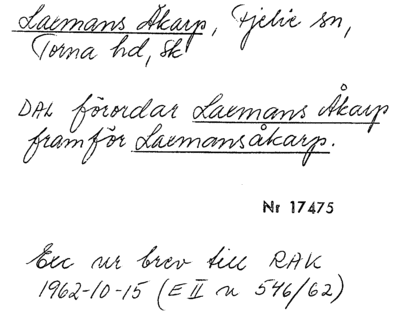 Laxmans Åkarp, Fjelie sn,
Torna hd, Sk
DAL förordar Laxmans Åkarp
framför Laxmansåkarp.
Nr 17475
Exc ur brev till RAK
1962-10-15 (E II u 546/62)